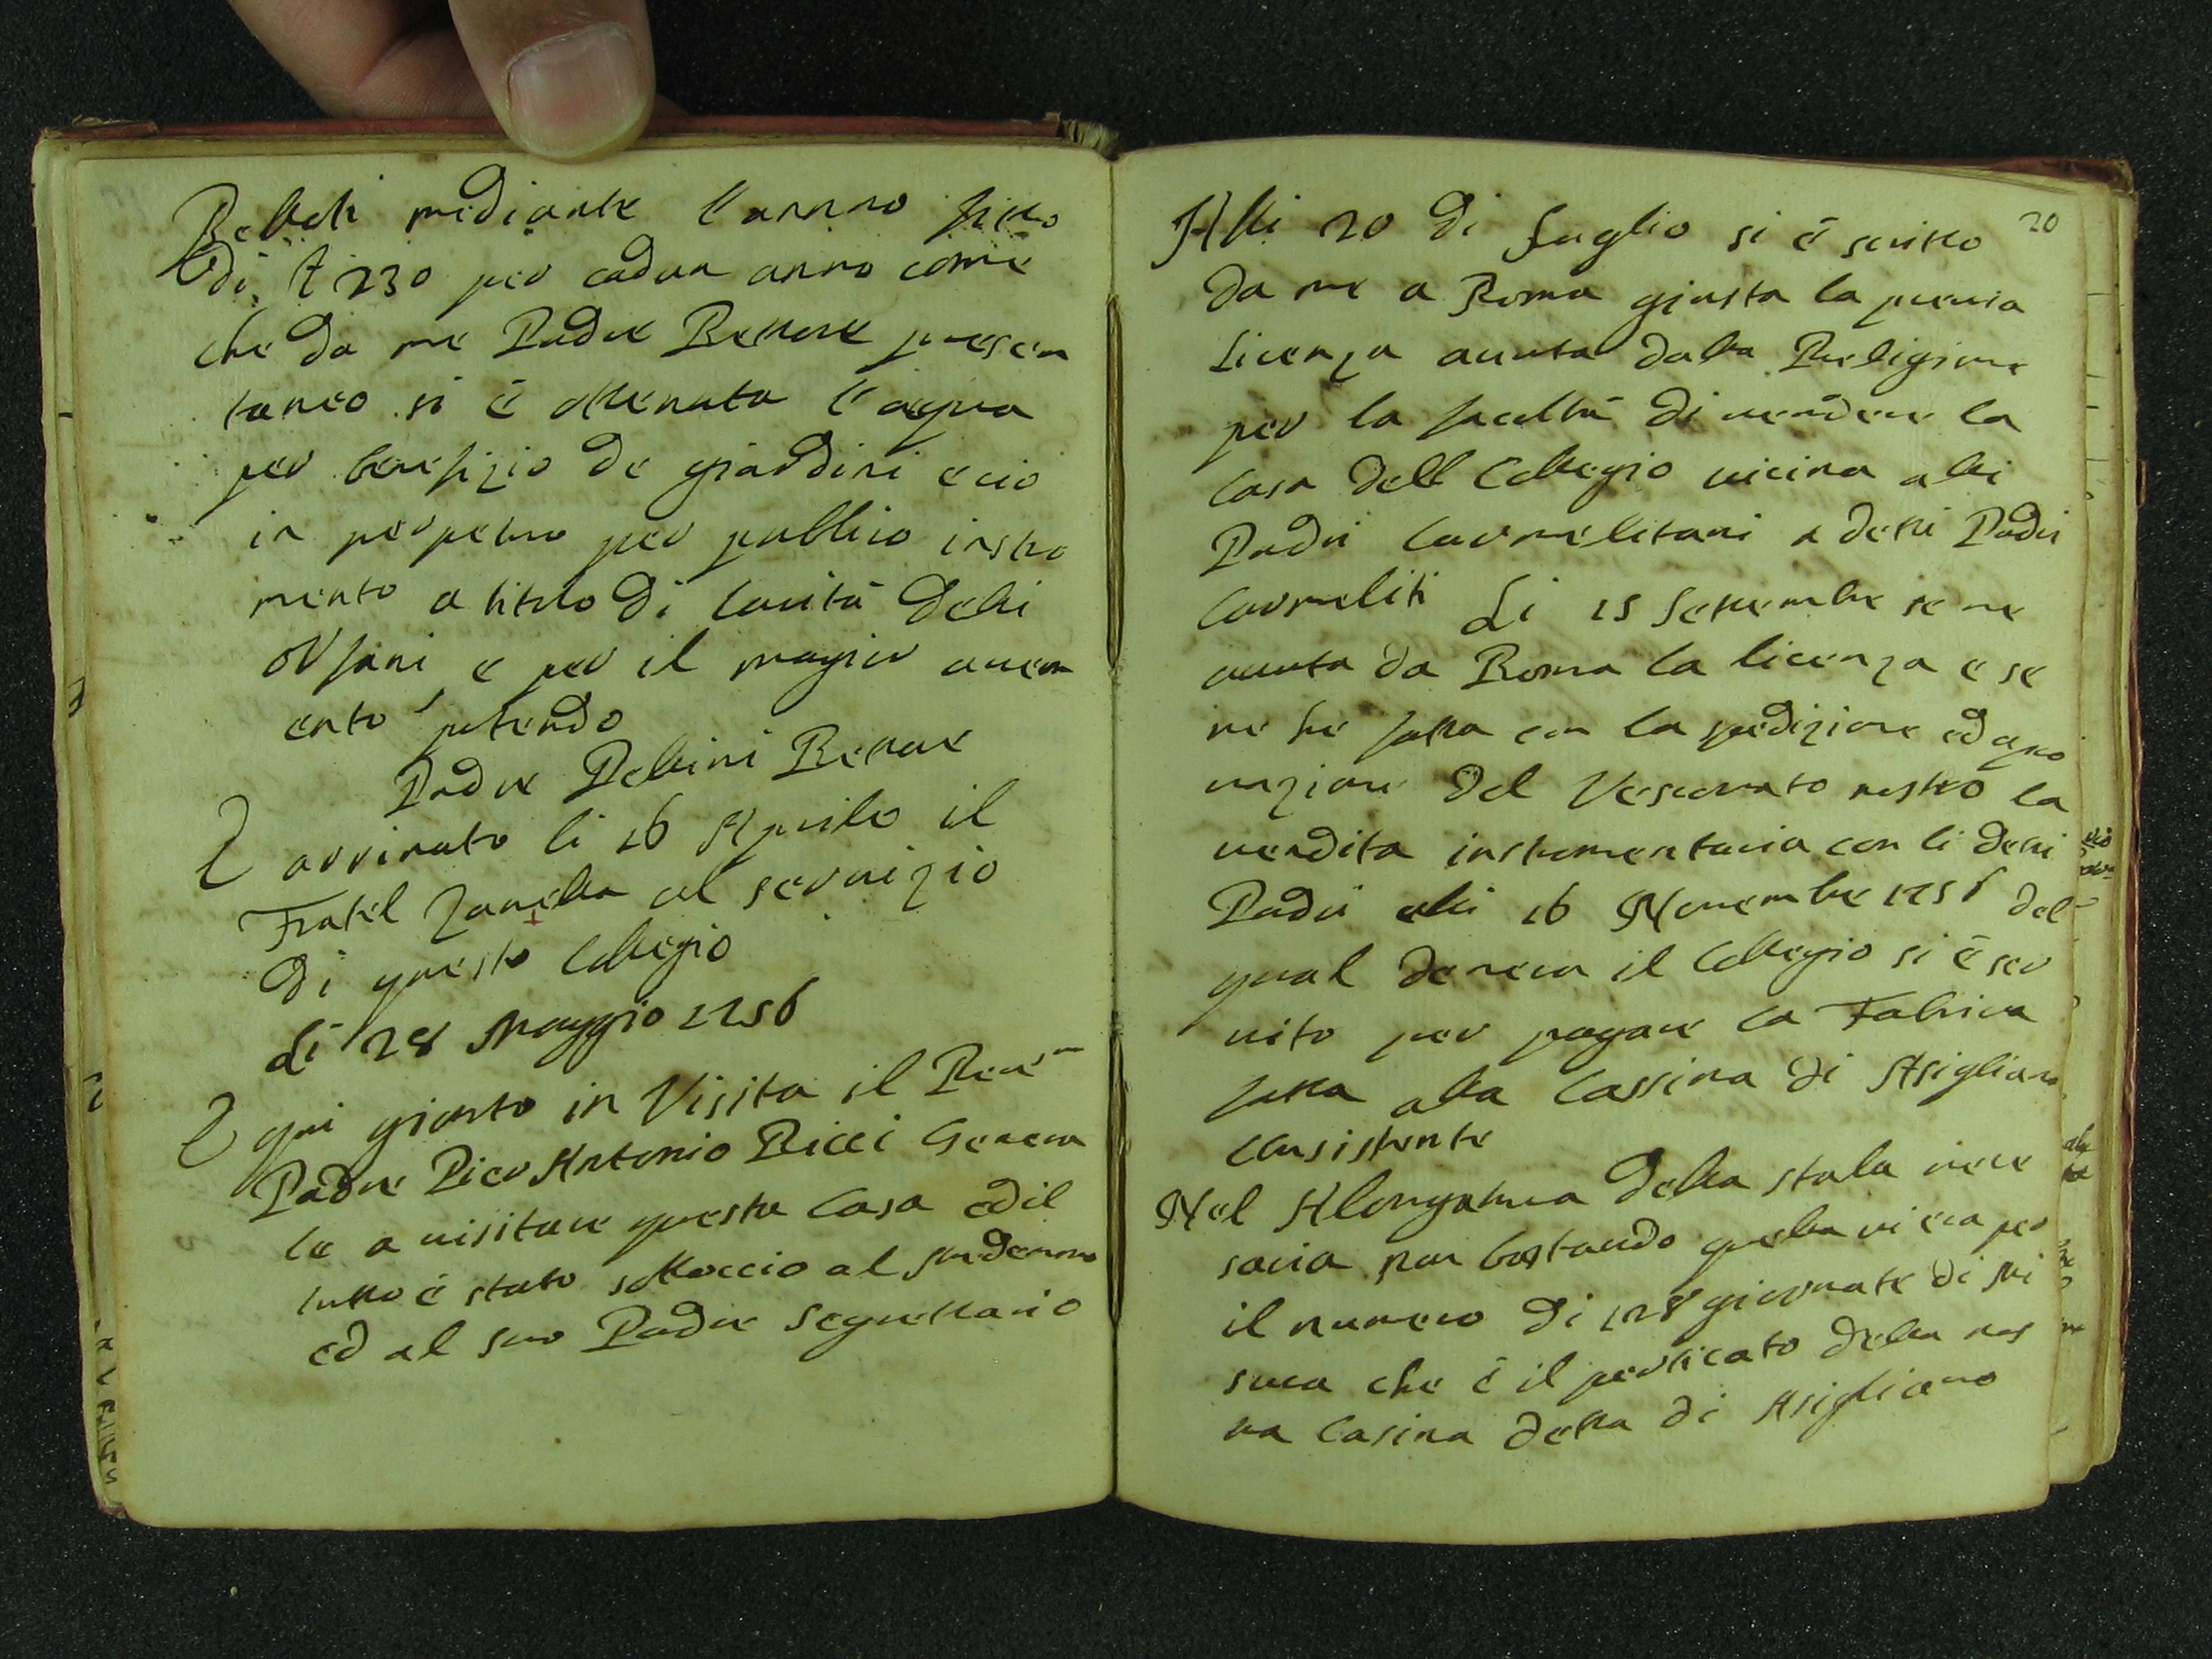 mediante l'annuo fitto
di £ 230 per cadun anno come
che da me Padre Rettore presen
taneo si è ottenuta l'aqua
per benefizio de giardini e cio
in perpetuo per publico instro
mento a titolo di carità delli
orfani e per il magior
potendo
Padre Pellini Rettore
È arrivato li 16 Aprile il
Fratel Zanella al servizio
di questo Collegio
Li 28 Maggio 1756
È qui gionto in Visita il Reu.mo
Padre Pier Antonio Ricci Genera
le a visitare questa Casa ed il
tutto è stato al
ed al suo Padre Segrettario
20
Alli 20 di Luglio si è scritto
da me a Roma giusta la previa
Licenza auuta dalla Religione
per la facoltà di vendere la
Casa dell Collegio vicina alli
Padri Carmelitani a detti Padri
Carmeliti Li 15 Settembre se ne
auuta da Roma la licenza e se
ne fatta con la spedizione ed apro
uazione del Vescovato nostro la
vendita instromentaria con li detti
Padri alli 16 Novembre 1756 del
qual denero il Collegio si è ser
uito per pagare la Fabrica
fatta alla Cassina di Asigliano
Consistente
Nel Alongatura della stala nece
saria non bastando quella vi era per
il numero di 128 giornate di mi
sura che è il perticato della nos
tra Casina detta di Asigliano